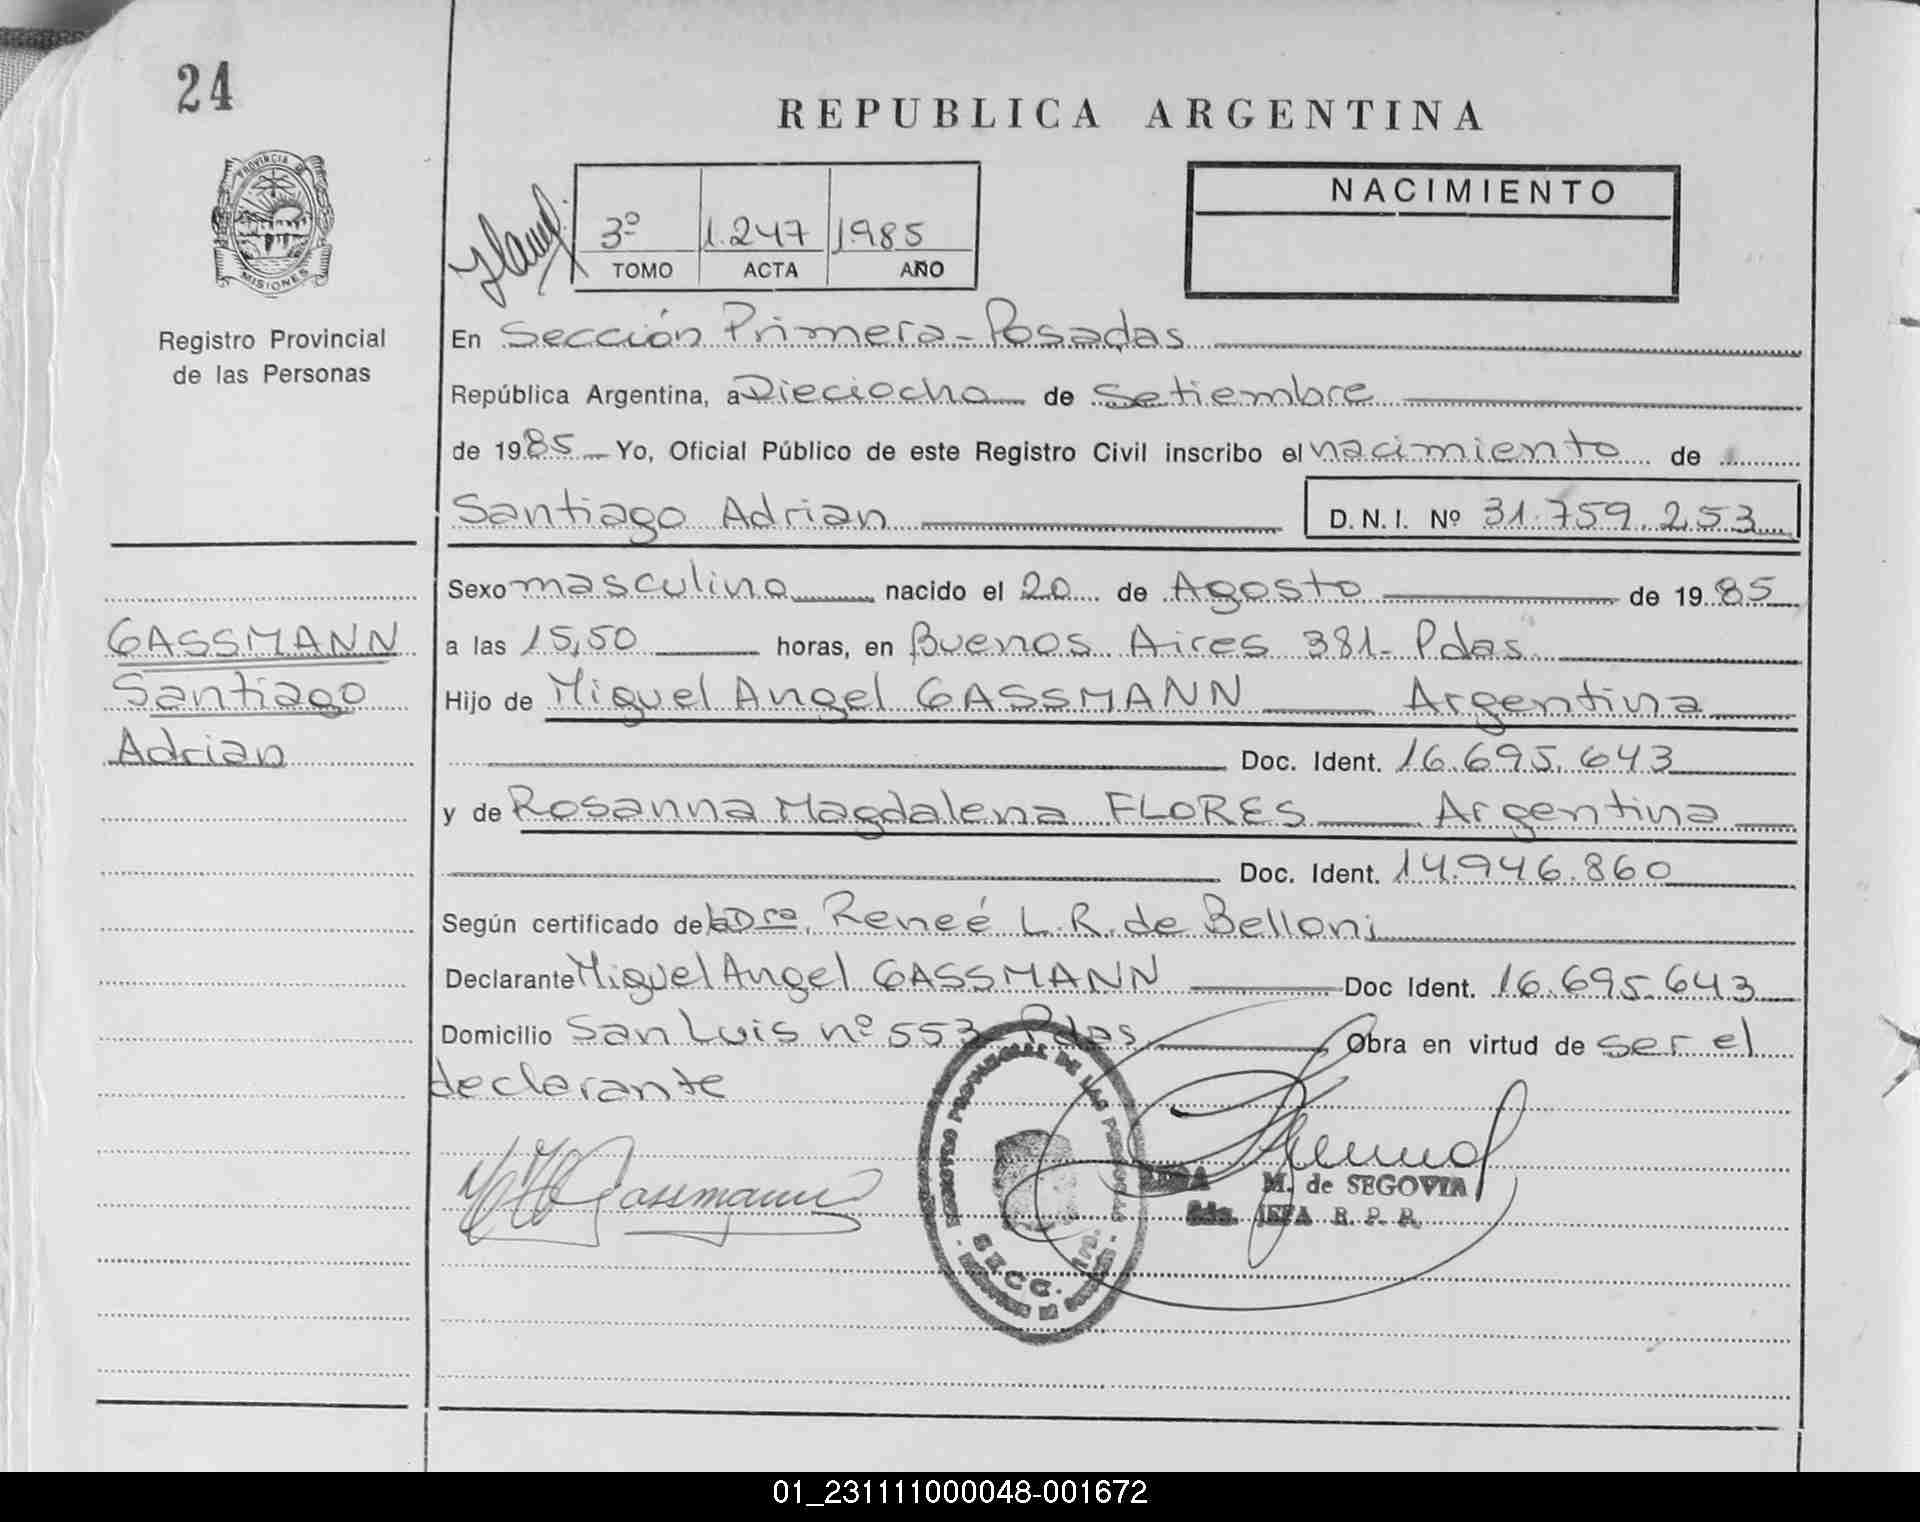 24
REPUBLICA ARGENTINA
PROVINCIA D
MISIONES
Registro Provincial
de las Personas
3º 1.247 1985
TOMO ACTA AÑO
NACIMIENTO
En Sección Primera - Posadas
República Argentina, a Dieciocho de Setiembre
de 1985 Yo, Oficial Público de este Registro Civil inscribo el nacimiento de
Santiago Adrian D.N.I. Nº 31.759.253
GASSMANN
Santiago
Adrian
Sexo masculino nacido el 20 de Agosto de 1985
a las 15,50 horas, en Buenos Aires 381 - Pdas
Hijo de Miguel Angel GASSMANN Argentina
Doc. Ident. 16.695.643
y de Rosanna Magdalena FLORES Argentina
Doc. Ident. 14.946.860
Según certificado de la Dra. Reneé L.R. de Belloni
Declarante Miguel Angel GASSMANN Doc Ident. 16.695.643
Domicilio San Luis nº 553 - Pdas Obra en virtud de ser el
declarante
Gassmann
PROVINCIAL DE LAS PERSONAS
SECC. 1ra.
M. de SEGOVIA
JEFA R. P. P.
01_231111000048-001672